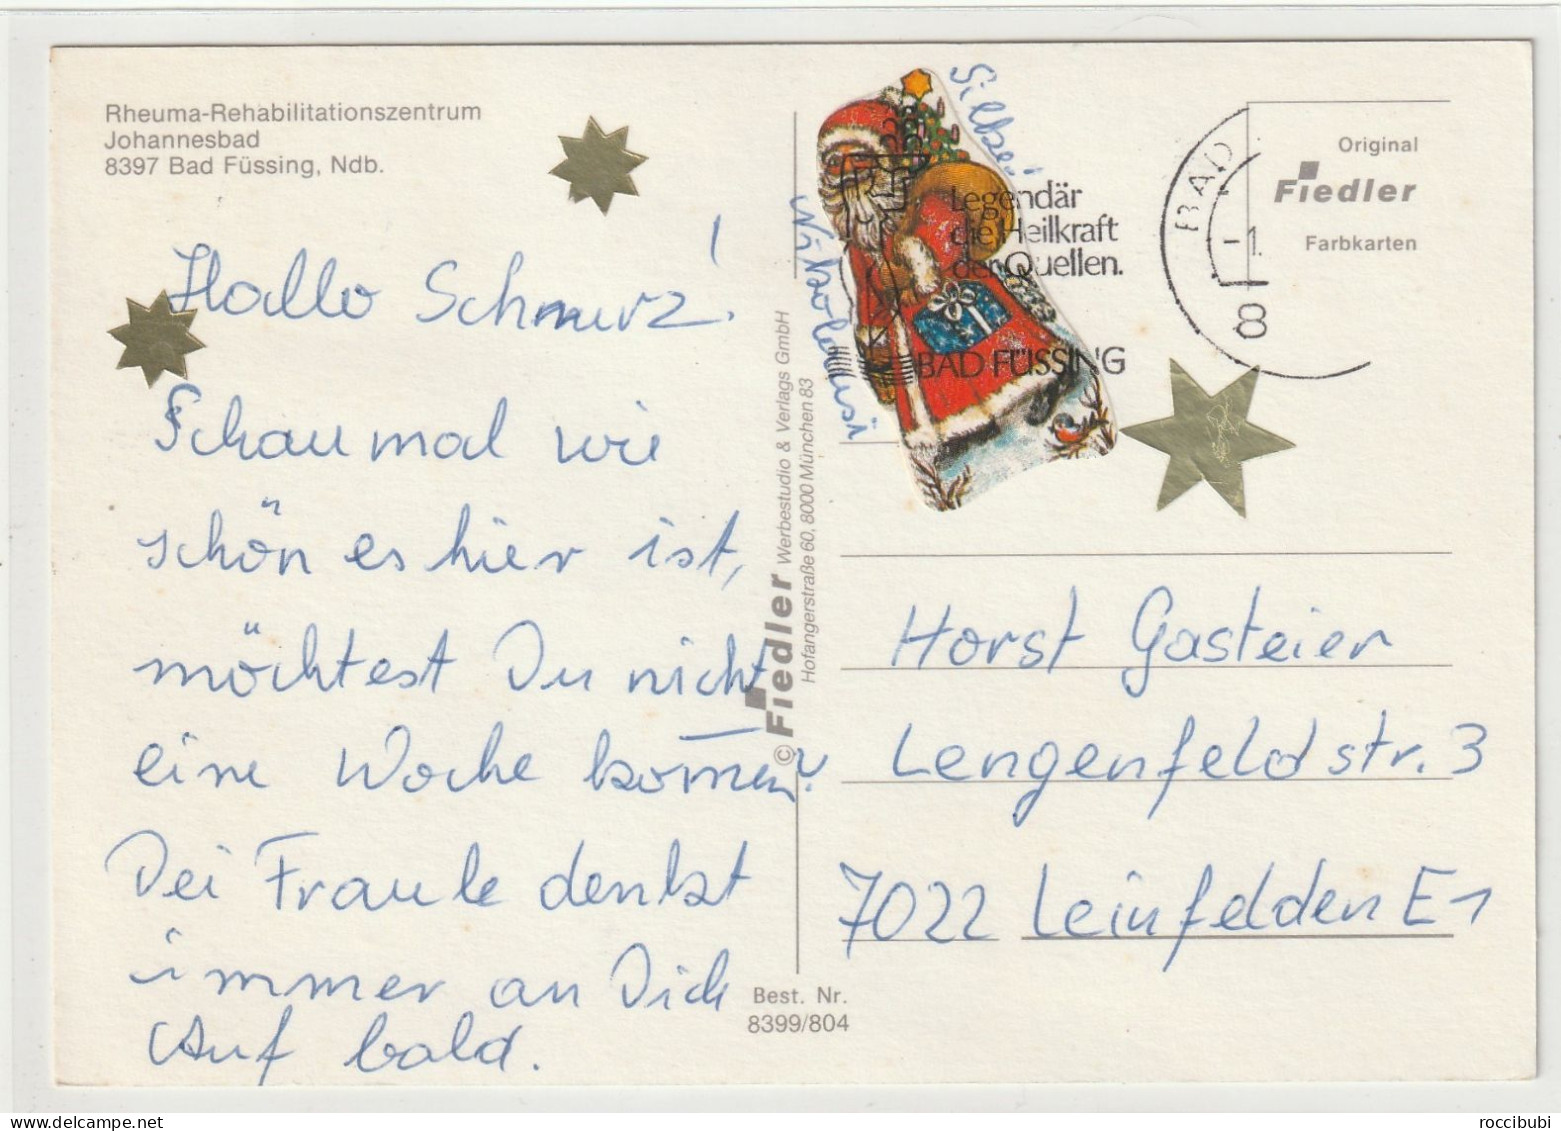 Rheuma-Rehabilitationszentrum
Johannesbad
8397 Bad Füssing, Ndb.
Hallo Schmurz!
Schau mal wie
schön es hier ist,
möchtest Du nicht
eine Woche kom̅en?
Dei Fraule denkt
immer an Dich
Auf bald.
© Fiedler Werbestudio & Verlags GmbH
Hofangerstraße 60, 8000 München 83
Best. Nr.
8399/804
Legendär
die Heilkraft
der Quellen.
BAD FÜSSING
BAD
-1.
8
Original
Fiedler
Farbkarten
Horst Gasteier
Lengenfeldstr. 3
7022 Leinfelden E1
roccibubi